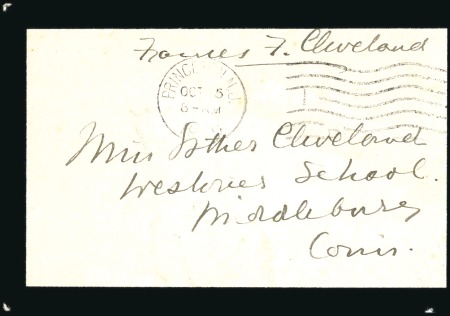 Frances F. Cleveland
PRINCETON, N.J.
OCT 5
8 - AM
Miss Esther Cleveland
Westover School.
Middlebury
Conn.